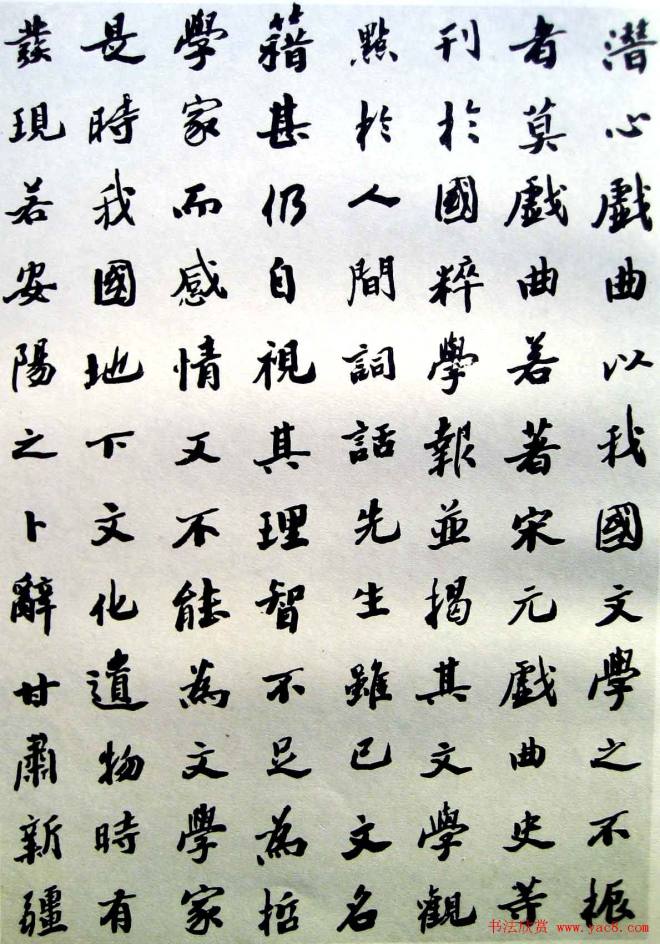 潛心戲曲以我國文學之不振
者莫戲曲若著宋元戲曲史等
刊於國粹學報並揭其文學觀
點於人間詞話先生雖已文名
籍甚仍自視其理智不足為哲
學家而感情又不能為文學家
是時我國地下文化遺物時有
發現若安陽之卜辭甘肅新疆
书法欣赏 www.yac8.com